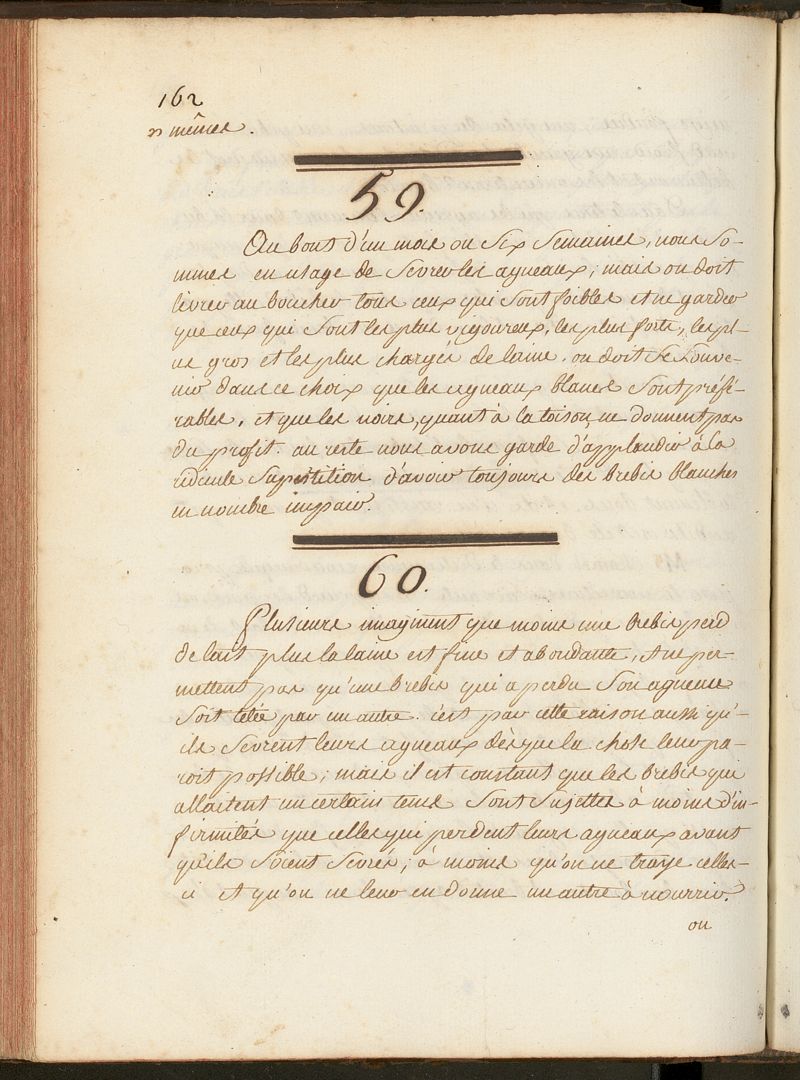 162
» mêmes.
59
Au bout d'un mois ou six semaines, nous so-
mmes en usage de sevrer les agneaux; mais on doit
livrer au boucher tous ceux qui sont foibles et ne garder
que ceux qui sont les plus vigoureux, les plus forts, les pl-
us gros et les plus chargés de laine. on doit se souve-
nir dans ce choix que les agneaux blancs sont préfé-
rables, et que les noirs, quant à la toison, ne donnent pas
du profit. au reste nous avons garde d'applaudir à la
ridicule supestition d'avoir toujours des brebis blanches
en nombre impair.
60.
Plusieurs imaginent que moins une brebis perd
de lait plus la laine est fine et abondante, et ne per-
mettent pas qu'une brebis qui a perdu son agneau
soit tétée par un autre. c'est par cette raison aussi qu'-
ils sevrent leurs agneaux dès que la chose leur pa-
roit possible; mais il est constant que les brebis qui
allaitent un certain tems sont sujettes à moins d'in-
firmités que celles qui perdent leurs agneaux avant
qu'ils soient sevrés; à moins qu'on ne traye celles-
ci et qu'on ne leur en donne un autre à nourrir.
ou